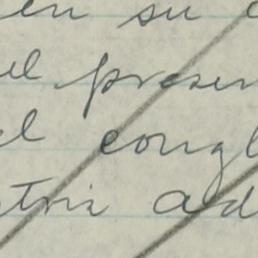 en su
el presen
el congl
tria ad